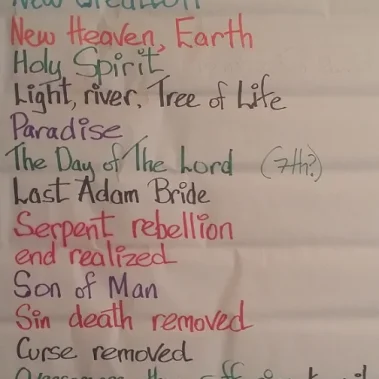 New Creation
New Heaven, Earth
Holy Spirit
Light, river, Tree of Life
Paradise
The Day of The Lord (7th?)
Last Adam Bride
Serpent rebellion
end realized
Son of Man
Sin death removed
Curse removed